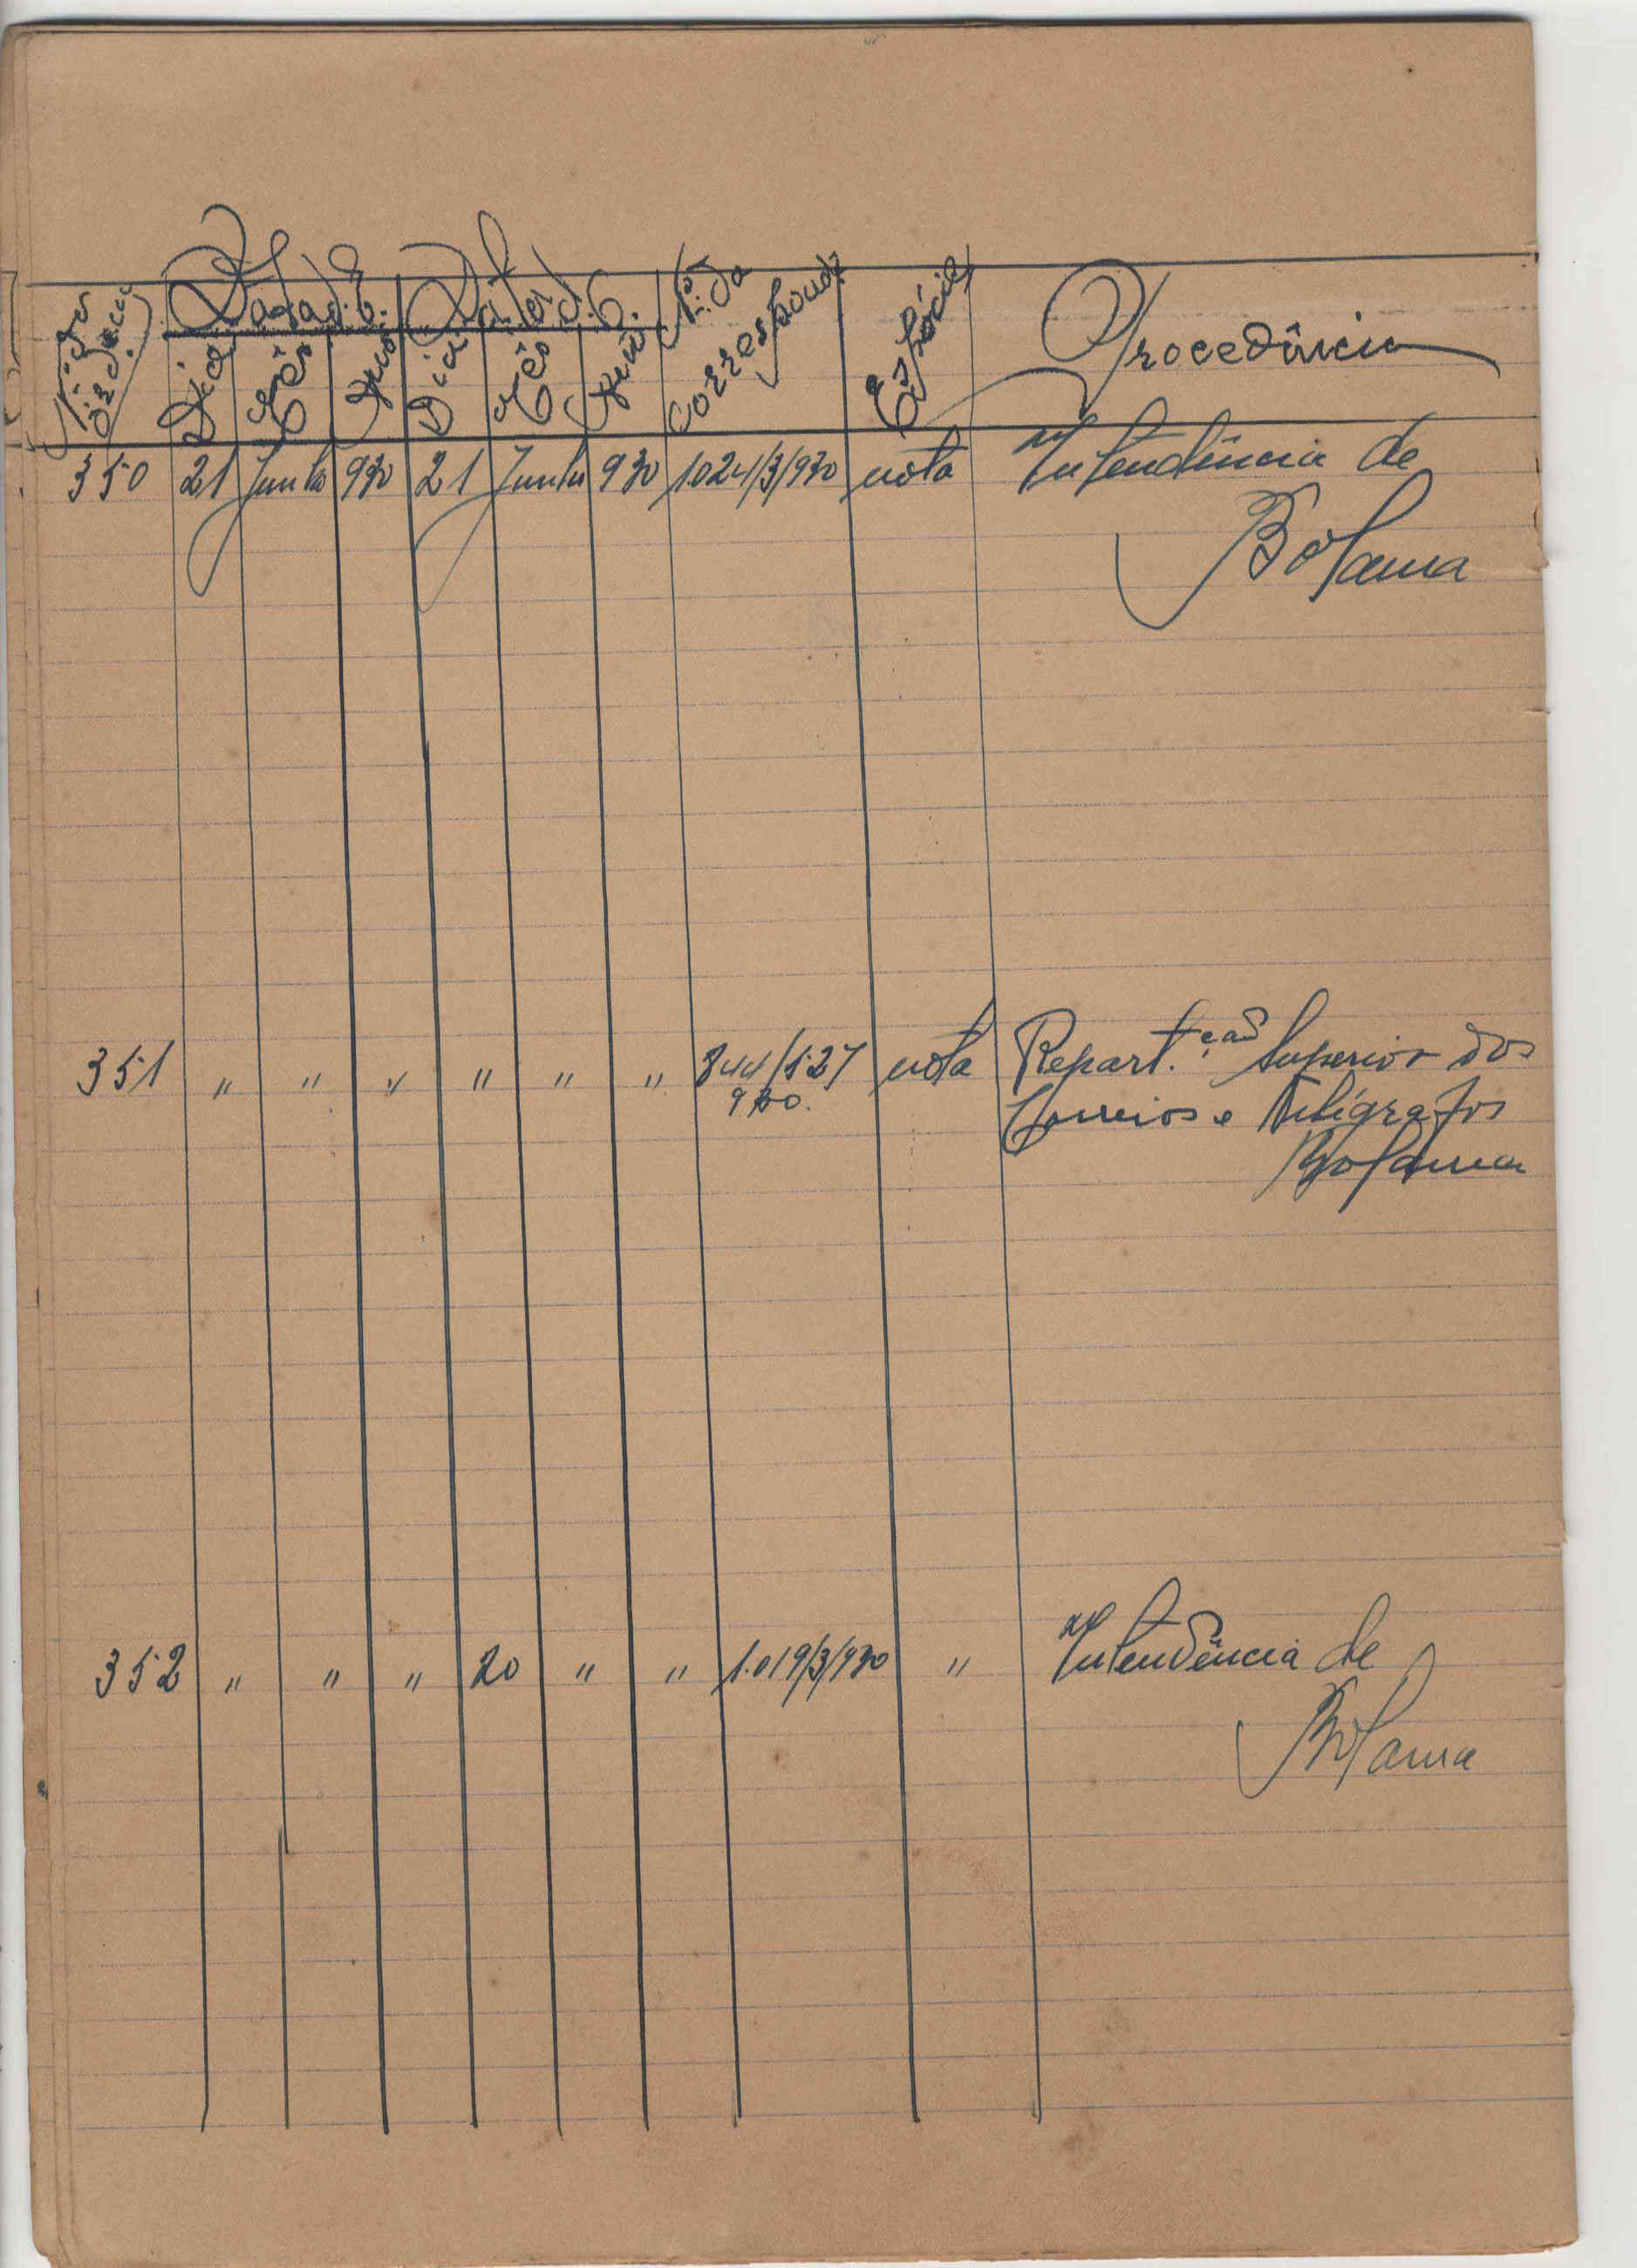 N.º de ordem Data d. E. Data d. C. N.º da correspond. Espécie Procedência
Dia Mês Ano Dia Mês Ano
350 21 Junho 930 21 Junho 930 1024/3/930 nota Intendência de
Bolama
351 " " " " " " 844/527 nota Repart.ção Superior dos
930. Correios e Telégrafos
Bolama
352 " " " 20 " " 1.019/3/930 " Intendência de
Bolama